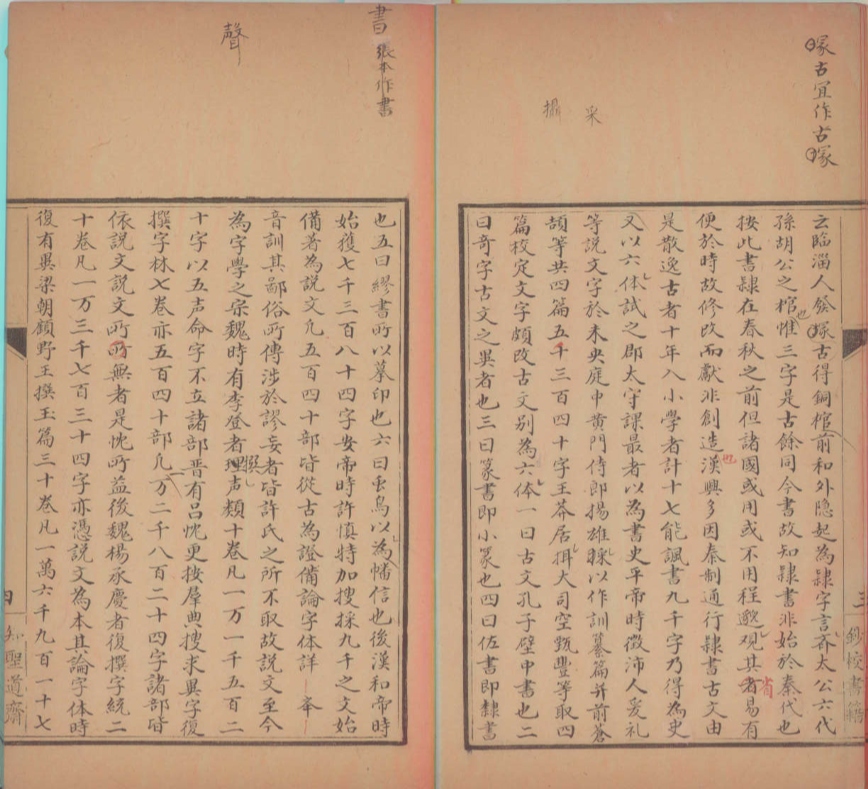 塚古宜作古塚
采
攝
云臨淄人發塚古得銅棺前和外隐起為隸字言齐太公六代
孫胡公之棺惟三字是古餘同今書故知隸書非始於秦代也
也
按此書隸在春秋之前但諸國或用或不用程邈观其者易有
省
便於時故修改而獻非創造漢興多因秦制通行隸書古文由
也
是散逸古者十年入小學者計十七能諷書九千字乃得為史
又以六体試之郡太守課最者以為書史平帝時徵沛人爰礼
等説文字於未央庭中黄門侍郎揚雄採以作訓纂篇并前蒼
頡等共四篇五千三百四十字王莽居摂大司空甄豐等取四
篇校定文字頗改古文别為六体一曰古文孔子壁中書也二
曰竒字古文之異者也三曰篆書即小篆也四曰佐書即隸書
三
鈔校書籍
書
張本作書
聲
也五曰繆書所以摹印也六曰䖝鳥以為幡信也後漢和帝時
始獲七千三百八十四字安帝時許慎特加搜採九千之文始
備著為説文凡五百四十部皆從古為證備論字体詳一举
音訓其鄙俗所傳涉於謬妄者皆許氏之所不取故説文至今
為字學之宗魏時有李登者理声類十卷凡一万一千五百二
撰
十字以五声命字不立諸部晋有呂忱更按羣典搜求異字復
撰字林七卷亦五百四十部凡一万二千八百二十四字諸部皆
依説文説文所所無者是忱所益後魏楊承慶者復撰字統二
十卷凡一万三千七百三十四字亦憑説文為本其論字体時
復有異梁朝顧野王撰玉篇三十卷凡一萬六千九百一十七
四
知聖道齋